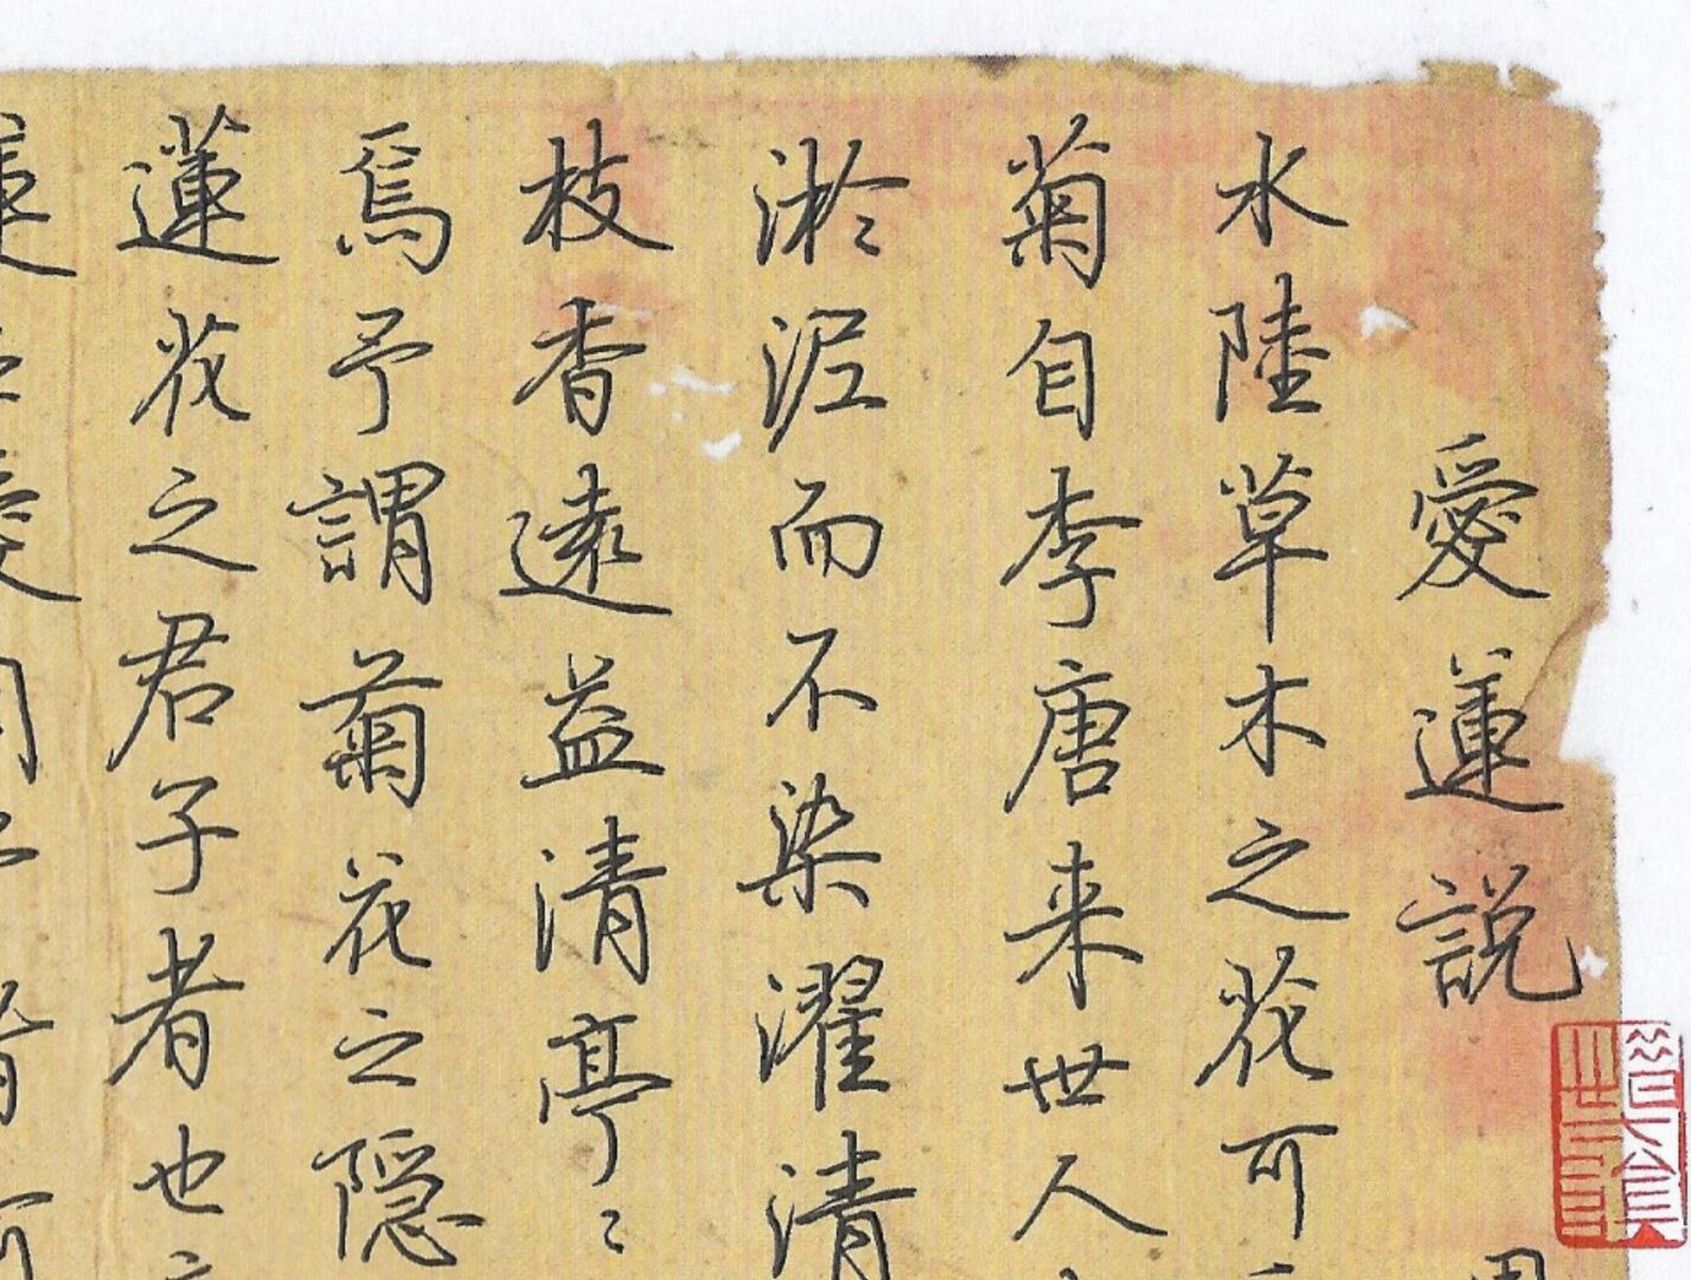 愛蓮說
水陸草木之花可
菊自李唐来世人
淤泥而不染濯清
枝香遠益清亭〻
焉予謂菊花之隱
蓮花之君子者也